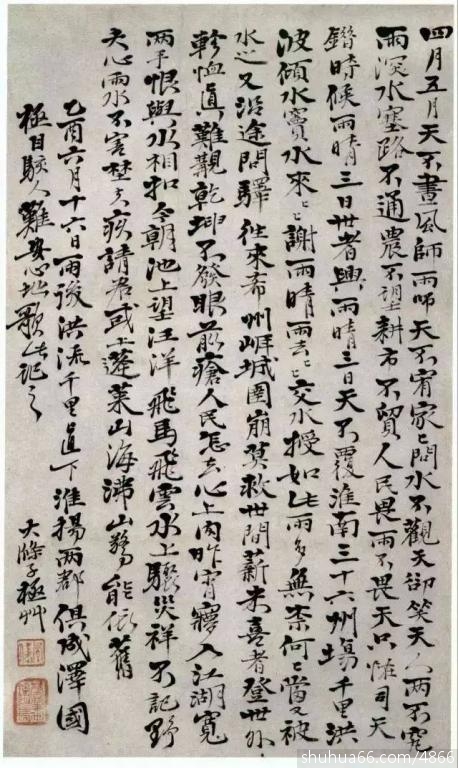 四月五月天不晝風師雨師天不宥家〻問水不觀天卻笑天人兩不究
雨深水塞路不通農不望耕市不貿人民畏雨不畏天只恠司天
錯時候雨晴三日世者興雨晴三日天不覆淮南三十六州塲千里洪
波傾水竇水來〻謝雨晴雨去〻交水授如此雨多無柰何〻當又被
水又沿途閘驛往來希州㟁城圍崩莫救世間薪米喜者登世外
軫恤真難觀乾坤不發眼前瘡人民怎去心上肉昨宵寢入江湖寬
兩手恨與水相扣今朝池上望汪洋飛馬飛雲水上驟災祥不記野
夫心雨水不害楚疾請君或上蓬萊山海沸山驚能依舊
乙酉六月十六日雨後洪流千里直下淮揚兩郡俱成澤國
極目駭人難安心地歌此記之
大滌子極艸
shuhua66.com/4866